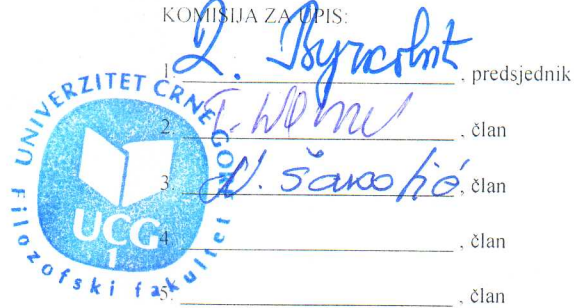 KOMISIJA ZA UPIS:
1. , predsjednik
2. , član
3. , član
4. , član
5. , član
UNIVERZITET CRNE GORE
Filozofski fakultet
UCG
1